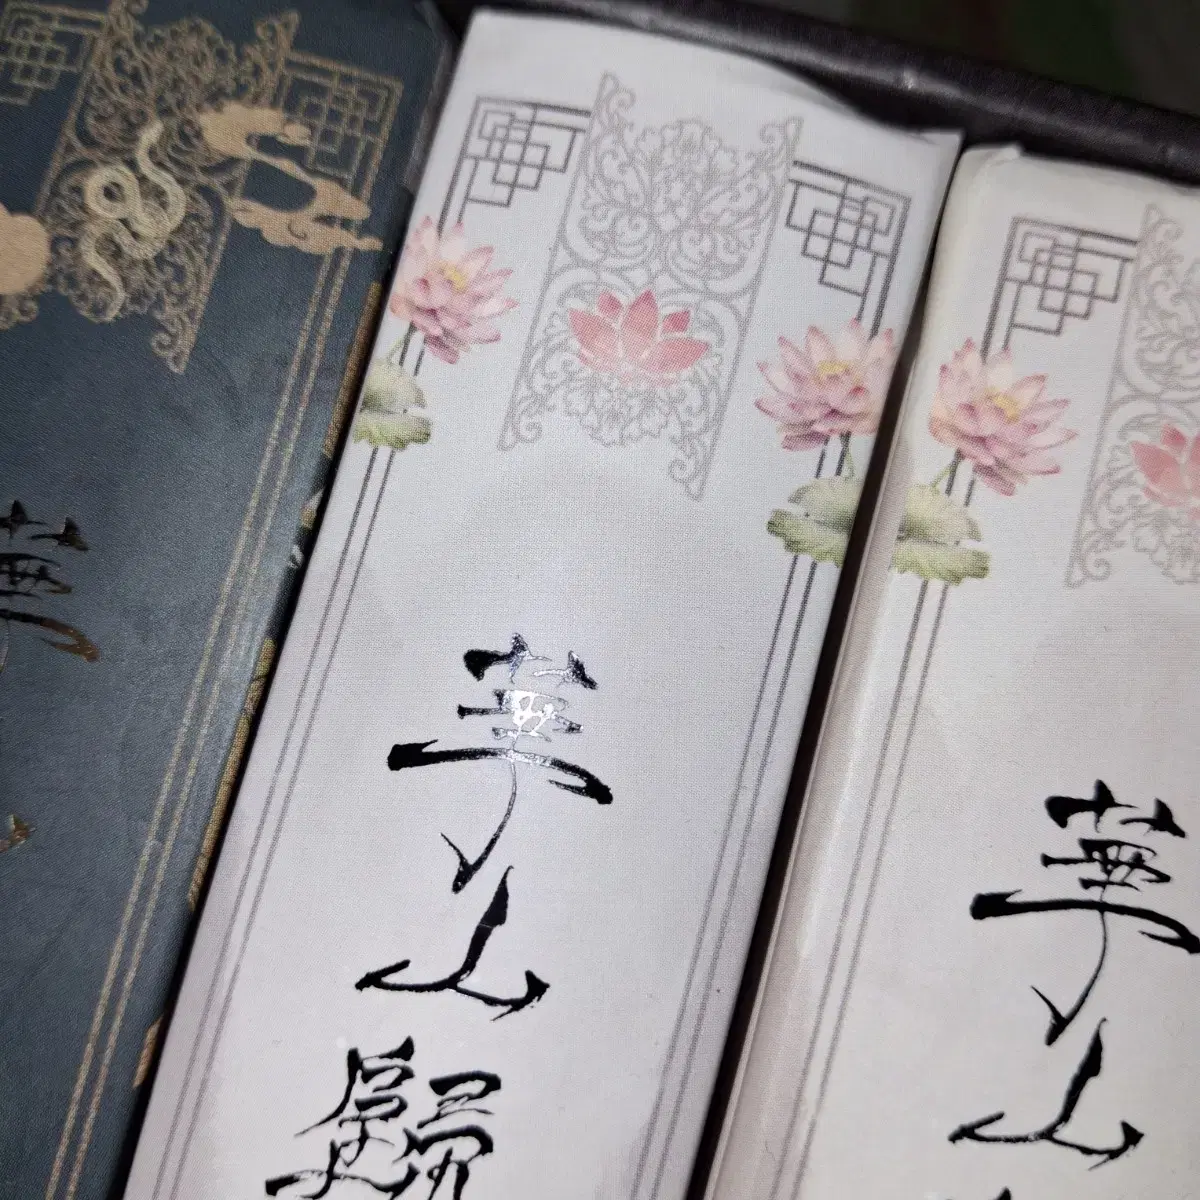 華
華山歸
華山